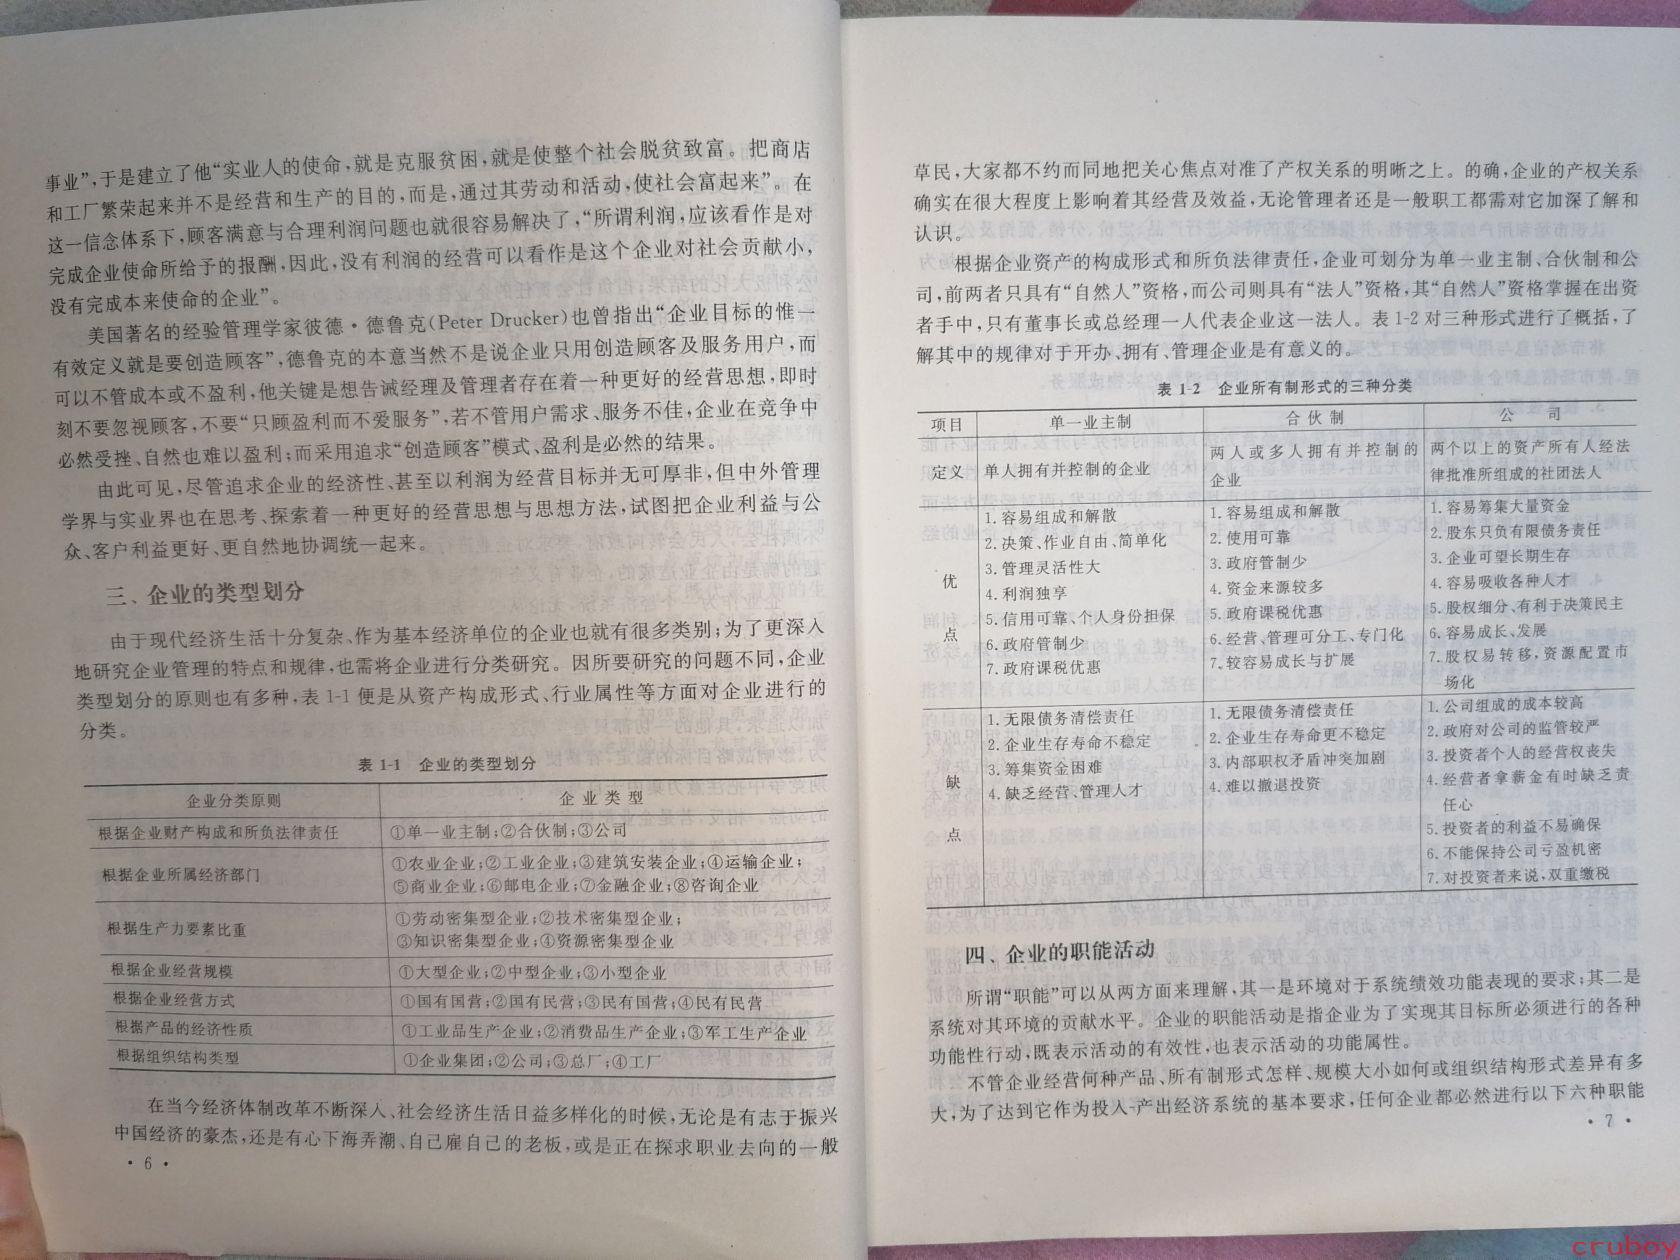 事业”,于是建立了他“实业人的使命,就是克服贫困,就是使整个社会脱贫致富。把商店
和工厂繁荣起来并不是经营和生产的目的,而是,通过其劳动和活动,使社会富起来”。在
这一信念体系下,顾客满意与合理利润问题也就很容易解决了,“所谓利润,应该看作是对
完成企业使命所给予的报酬,因此,没有利润的经营可以看作是这个企业对社会贡献小,
没有完成本来使命的企业”。
美国著名的经验管理学家彼德·德鲁克(Peter Drucker)也曾指出“企业目标的惟一
有效定义就是要创造顾客”,德鲁克的本意当然不是说企业只用创造顾客及服务用户,而
可以不管成本或不盈利,他关键是想告诫经理及管理者存在着一种更好的经营思想,即时
刻不要忽视顾客,不要“只顾盈利而不爱服务”,若不管用户需求、服务不佳,企业在竞争中
必然受挫、自然也难以盈利;而采用追求“创造顾客”模式、盈利是必然的结果。
由此可见,尽管追求企业的经济性、甚至以利润为经营目标并无可厚非,但中外管理
学界与实业界也在思考、探索着一种更好的经营思想与思想方法,试图把企业利益与公
众、客户利益更好、更自然地协调统一起来。
三、企业的类型划分
由于现代经济生活十分复杂、作为基本经济单位的企业也就有很多类别;为了更深入
地研究企业管理的特点和规律,也需将企业进行分类研究。因所要研究的问题不同,企业
类型划分的原则也有多种,表 1-1 便是从资产构成形式、行业属性等方面对企业进行的
分类。
表 1-1 企业的类型划分
企业分类原则 企业类型
根据企业财产构成和所负法律责任 ①单一业主制;②合伙制;③公司
根据企业所属经济部门 ①农业企业;②工业企业;③建筑安装企业;④运输企业;
⑤商业企业;⑥邮电企业;⑦金融企业;⑧咨询企业
根据生产力要素比重 ①劳动密集型企业;②技术密集型企业;
③知识密集型企业;④资源密集型企业
根据企业经营规模 ①大型企业;②中型企业;③小型企业
根据企业经营方式 ①国有国营;②国有民营;③民有国营;④民有民营
根据产品的经济性质 ①工业品生产企业;②消费品生产企业;③军工生产企业
根据组织结构类型 ①企业集团;②公司;③总厂;④工厂
在当今经济体制改革不断深人、社会经济生活日益多样化的时候,无论是有志于振兴
中国经济的豪杰,还是有心下海弄潮、自己雇自己的老板,或是正在探求职业去向的一般
·6·
草民,大家都不约而同地把关心焦点对准了产权关系的明晰之上。的确,企业的产权关系
确实在很大程度上影响着其经营及效益,无论管理者还是一般职工都需对它加深了解和
认识。
根据企业资产的构成形式和所负法律责任,企业可划分为单一业主制、合伙制和公
司,前两者只具有“自然人”资格,而公司则具有“法人”资格,其“自然人”资格掌握在出资
者手中,只有董事长或总经理一人代表企业这一法人。表 1-2 对三种形式进行了概括,了
解其中的规律对于开办、拥有、管理企业是有意义的。
表 1-2 企业所有制形式的三种分类
项目 单一业主制 合伙制 公司
定义 单人拥有并控制的企业 两人或多人拥有并控制的企业 两个以上的资产所有人经法律批准所组成的社团法人
优点
1. 容易组成和解散
2. 决策、作业自由、简单化
3. 管理灵活性大
4. 利润独享
5. 信用可靠、个人身份担保
6. 政府管制少
7. 政府课税优惠
1. 容易组成和解散
2. 使用可靠
3. 政府管制少
4. 资金来源较多
5. 政府课税优惠
6. 经营、管理可分工、专门化
7. 较容易成长与扩展
1. 容易筹集大量资金
2. 股东只负有限债务责任
3. 企业可望长期生存
4. 容易吸收各种人才
5. 股权细分、有利于决策民主
6. 容易成长、发展
7. 股权易转移,资源配置市
场化
缺点
1. 无限债务清偿责任
2. 企业生存寿命不稳定
3. 筹集资金困难
4. 缺乏经营、管理人才
1. 无限债务清偿责任
2. 企业生存寿命更不稳定
3. 内部职权矛盾冲突加剧
4. 难以撤退投资
1. 公司组成的成本较高
2. 政府对公司的监管较严
3. 投资者个人的经营权丧失
4. 经营者拿薪金有时缺乏责
任心
5. 投资者的利益不易确保
6. 不能保持公司亏盈机密
7. 对投资者来说,双重缴税
四、企业的职能活动
所谓“职能”可以从两方面来理解,其一是环境对于系统绩效功能表现的要求;其二是
系统对其环境的贡献水平。企业的职能活动是指企业为了实现其目标所必须进行的各种
功能性行动,既表示活动的有效性,也表示活动的功能属性。
不管企业经营何种产品、所有制形式怎样、规模大小如何或组织结构形式差异有多
大,为了达到它作为投入-产出经济系统的基本要求,任何企业都必然进行以下六种职能
·7·
cruboy